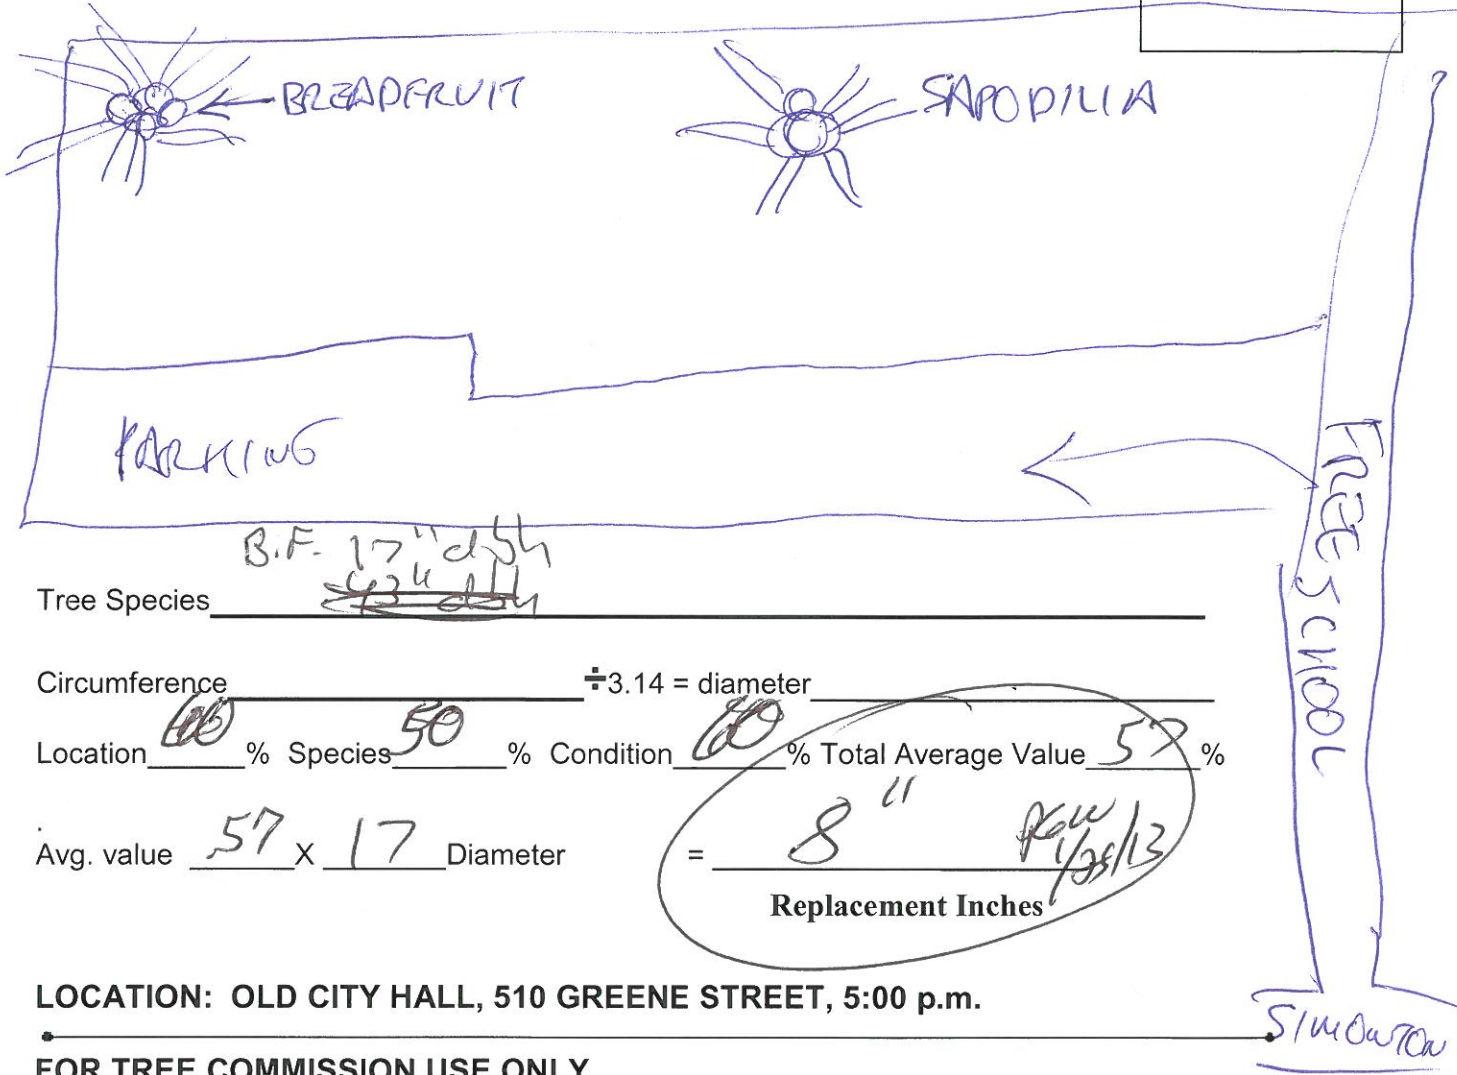 BREADFRUIT
SAPODILLA
PARKING
FREE SCHOOL
B.F. 17" dbh
Tree Species
Circumference ÷3.14 = diameter
Location % Species 50 % Condition 60 % Total Average Value 57 %
Avg. value .57 X 17 Diameter = 8"
1/25/13
Replacement Inches
LOCATION: OLD CITY HALL, 510 GREENE STREET, 5:00 p.m.
SIMONTON
FOR TREE COMMISSION USE ONLY